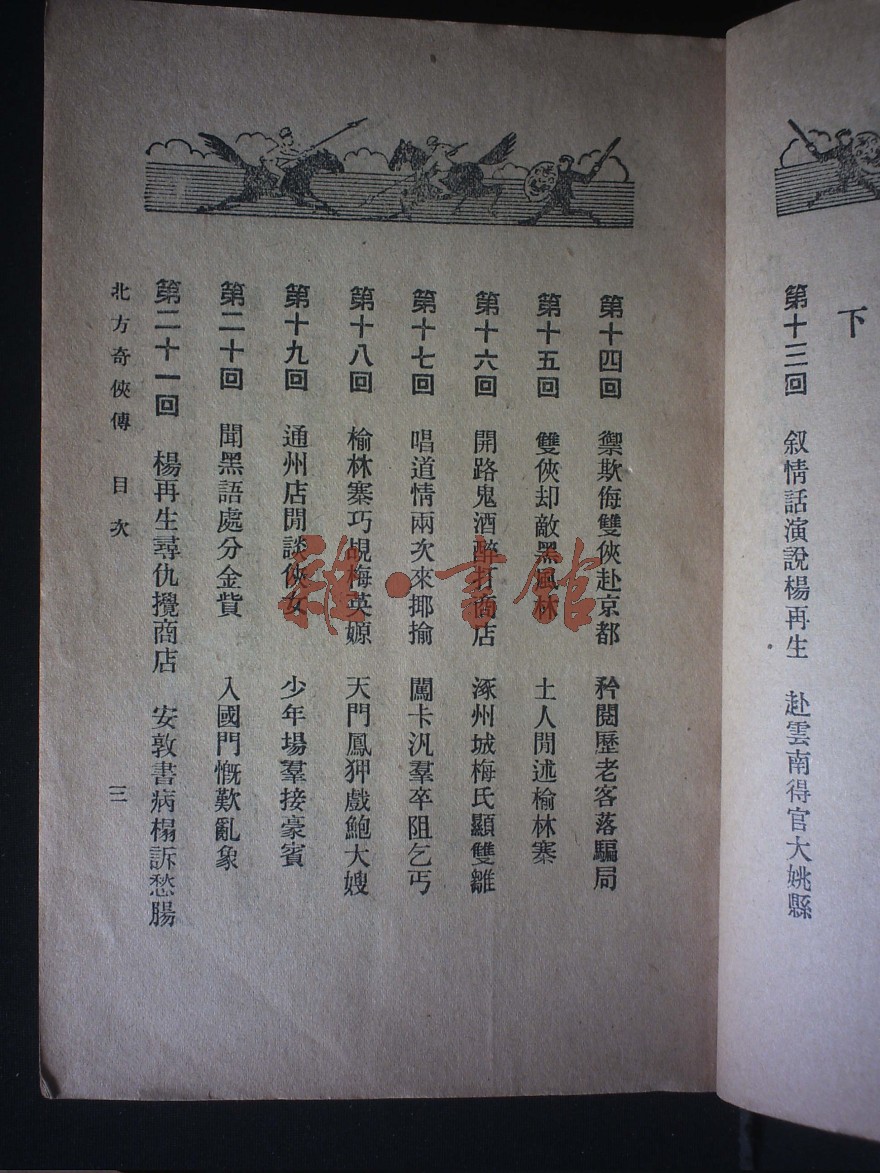 下
第十三回　叙情話演說楊再生　赴雲南得官大姚縣
第十四回　禦欺侮雙俠赴京都　矜閱歷老客落騙局
第十五回　雙俠却敵黑風林　土人閒述榆林寨
第十六回　開路鬼酒醉打商店　涿州城梅氏顯雙雛
第十七回　唱道情兩次來揶揄　闖卡汛羣卒阻乞丐
第十八回　榆林寨巧覘梅英嫄　天門鳳狎戲鮑大嫂
第十九回　通州店閒談俠女　少年場羣接豪賓
第二十回　聞黑語處分金貲　入國門慨歎亂象
第二十一回　楊再生尋仇攪商店　安敦書病榻訴愁腸
北方奇俠傳　目次
三
雜·書館